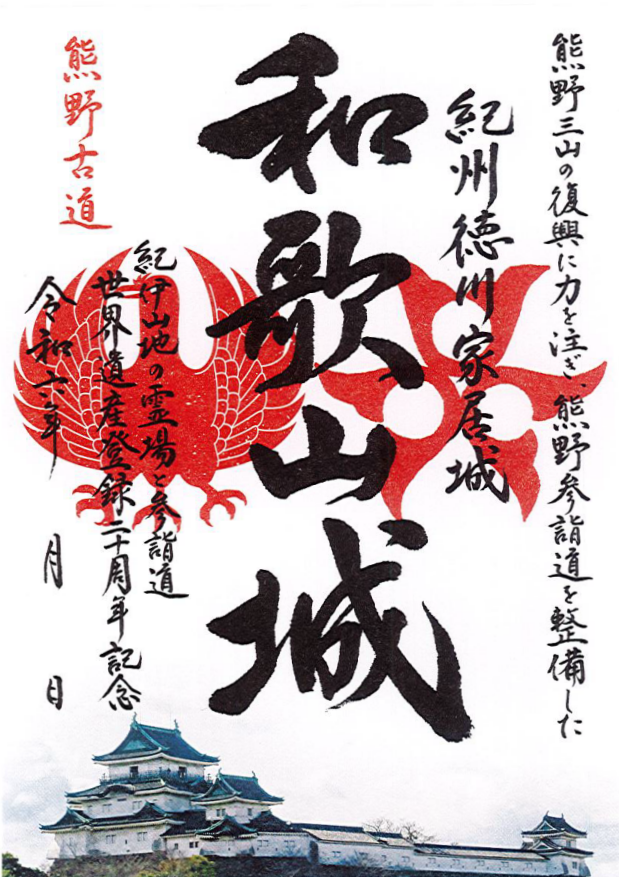 熊野三山の復興に力を注ぎ、熊野参詣道を整備した
紀州徳川家居城
和歌山城
紀伊山地の霊場と参詣道
世界遺産登録二十周年記念
熊野古道
令和六年 月 日